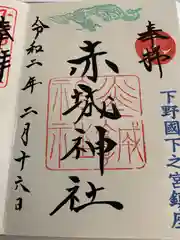 奉拝
下野國下之宮鎮座
赤城神社
令和二年二月十六日